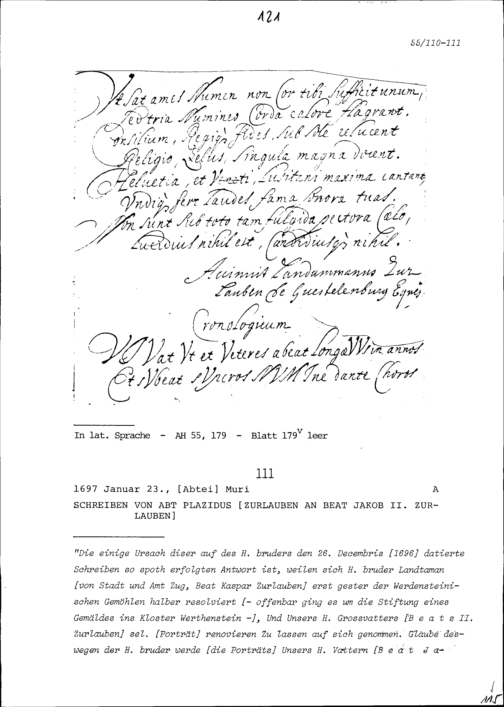 121
55/110-111
Ut Sat ames Numen non Cor tibi Sufficit unum,
tria Numine Corda calore flagrant.
Consilium, Fides, Sub Sole relucent
Religio, Zelus, Singula magna Docent.
Helvetia, et Lusitani maxima cantant
Undiq. fert Laudes fama Sonora tuas.
Non Sunt Sub toto tam fulgida pectora Caelo,
Lucidius nihil est, Candidiusq. nihil.
Landammanus Zur
Lauben de Guestelenburg Eques
Cronologicum
VIVat Vt et Veteres abeat LongaeVVs in annos
Et sVbeat NVMIne dante Choros
In lat. Sprache - AH 55, 179 - Blatt 179V leer
111
1697 Januar 23., [Abtei] Muri A
SCHREIBEN VON ABT PLAZIDUS [ZURLAUBEN AN BEAT JAKOB II. ZUR-
LAUBEN]
"Die einige Ursach diser auf des H. bruders den 26. Decembris [1696] datierte
Schreiben so spoth erfolgten Antwort ist, weilen sich H. bruder Landtaman
[von Stadt und Amt Zug, Beat Kaspar Zurlauben] erst gester der Werdensteini-
schen Gemöhlen halber resolviert [- offenbar ging es um die Stiftung eines
Gemäldes ins Kloster Werthenstein -], Und Unsers H. Grossvatters [B e a t s II.
Zurlauben] sel. [Porträt] renovieren Zu lassen auf sich genommen. Glaube des-
wegen der H. bruder werde [die Porträts] Unsers H. Vattern [B e a t J a-